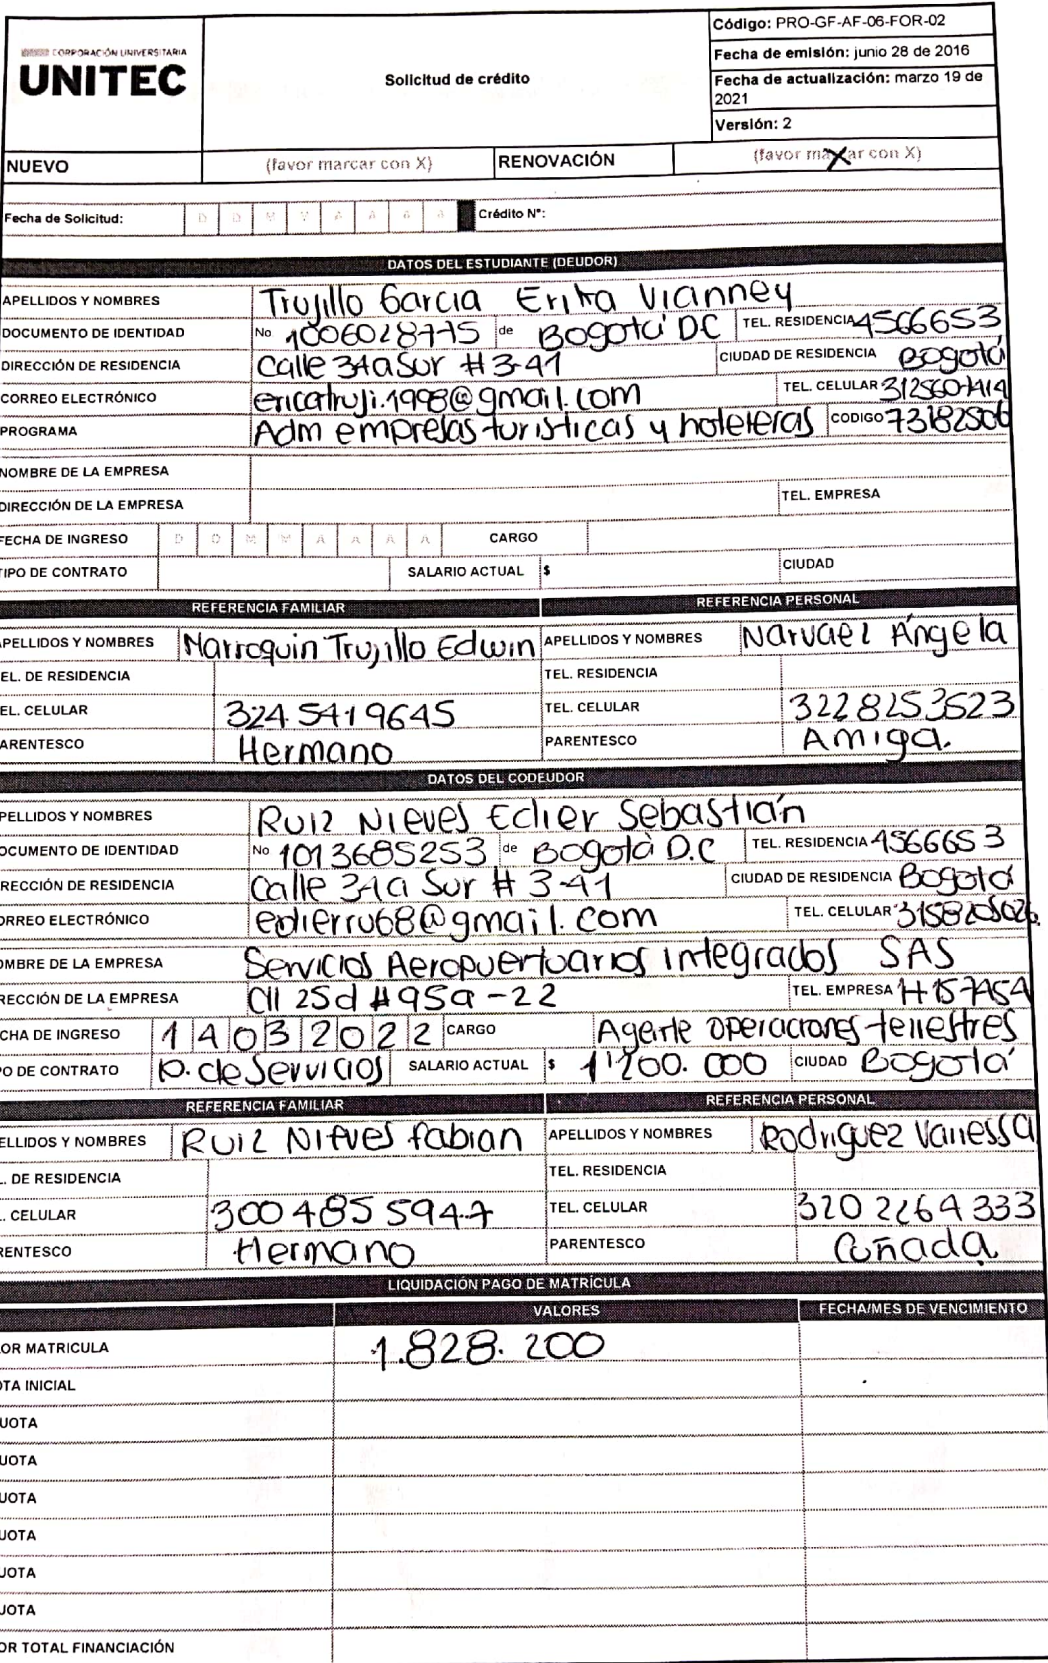 CORPORACIÓN UNIVERSITARIA
UNITEC
Solicitud de crédito
Código: PRO-GF-AF-06-FOR-02
Fecha de emisión: junio 28 de 2016
Fecha de actualización: marzo 19 de
2021
Versión: 2
NUEVO (favor marcar con X) RENOVACIÓN (favor marcar con X) X
Fecha de Solicitud: D D M M A A A A Crédito N°:
DATOS DEL ESTUDIANTE (DEUDOR)
APELLIDOS Y NOMBRES Trujillo Garcia Erika Vianney
DOCUMENTO DE IDENTIDAD No de Bogotá DC TEL. RESIDENCIA 4566653
DIRECCIÓN DE RESIDENCIA Calle 31a Sur # 3-41 CIUDAD DE RESIDENCIA Bogotá
CORREO ELECTRÓNICO ericatruji.1998@gmail.com TEL. CELULAR
PROGRAMA Adm empresas turisticas y hoteleras CODIGO 73182506
NOMBRE DE LA EMPRESA
DIRECCIÓN DE LA EMPRESA TEL. EMPRESA
FECHA DE INGRESO D D M M A A A A CARGO
TIPO DE CONTRATO SALARIO ACTUAL $ CIUDAD
REFERENCIA FAMILIAR REFERENCIA PERSONAL
APELLIDOS Y NOMBRES Marroquin Trujillo Edwin APELLIDOS Y NOMBRES Narvaez Ángela
EL. DE RESIDENCIA TEL. RESIDENCIA
EL. CELULAR 324 5419645 TEL. CELULAR 3228253523
ARENTESCO Hermano PARENTESCO Amiga.
DATOS DEL CODEUDOR
PELLIDOS Y NOMBRES Ruiz Nieves Edier Sebastián
OCUMENTO DE IDENTIDAD No 1013685253 de Bogotá D.C TEL. RESIDENCIA 4566653
RECCIÓN DE RESIDENCIA Calle 31a Sur # 3-41 CIUDAD DE RESIDENCIA Bogotá
ORREO ELECTRÓNICO edierru68@gmail.com TEL. CELULAR 3158205026
OMBRE DE LA EMPRESA Servicios Aeropuertuarios integrados SAS
RECCIÓN DE LA EMPRESA Cll 25d #95a-22 TEL. EMPRESA
CHA DE INGRESO 1 4 0 3 2 0 2 2 CARGO Agente operaciones terrestres
PO DE CONTRATO p. de Servicios SALARIO ACTUAL $ 1'200.000 CIUDAD Bogotá
REFERENCIA FAMILIAR REFERENCIA PERSONAL
ELLIDOS Y NOMBRES Ruiz Nieves fabian APELLIDOS Y NOMBRES Rodriguez Vanessa
L. DE RESIDENCIA TEL. RESIDENCIA
L. CELULAR 300 485 5947 TEL. CELULAR 320 2264 333
RENTESCO Hermano PARENTESCO Cuñada
LIQUIDACIÓN PAGO DE MATRÍCULA
VALORES FECHA/MES DE VENCIMIENTO
LOR MATRICULA 1.828.200
OTA INICIAL
UOTA
UOTA
UOTA
UOTA
UOTA
UOTA
OR TOTAL FINANCIACIÓN